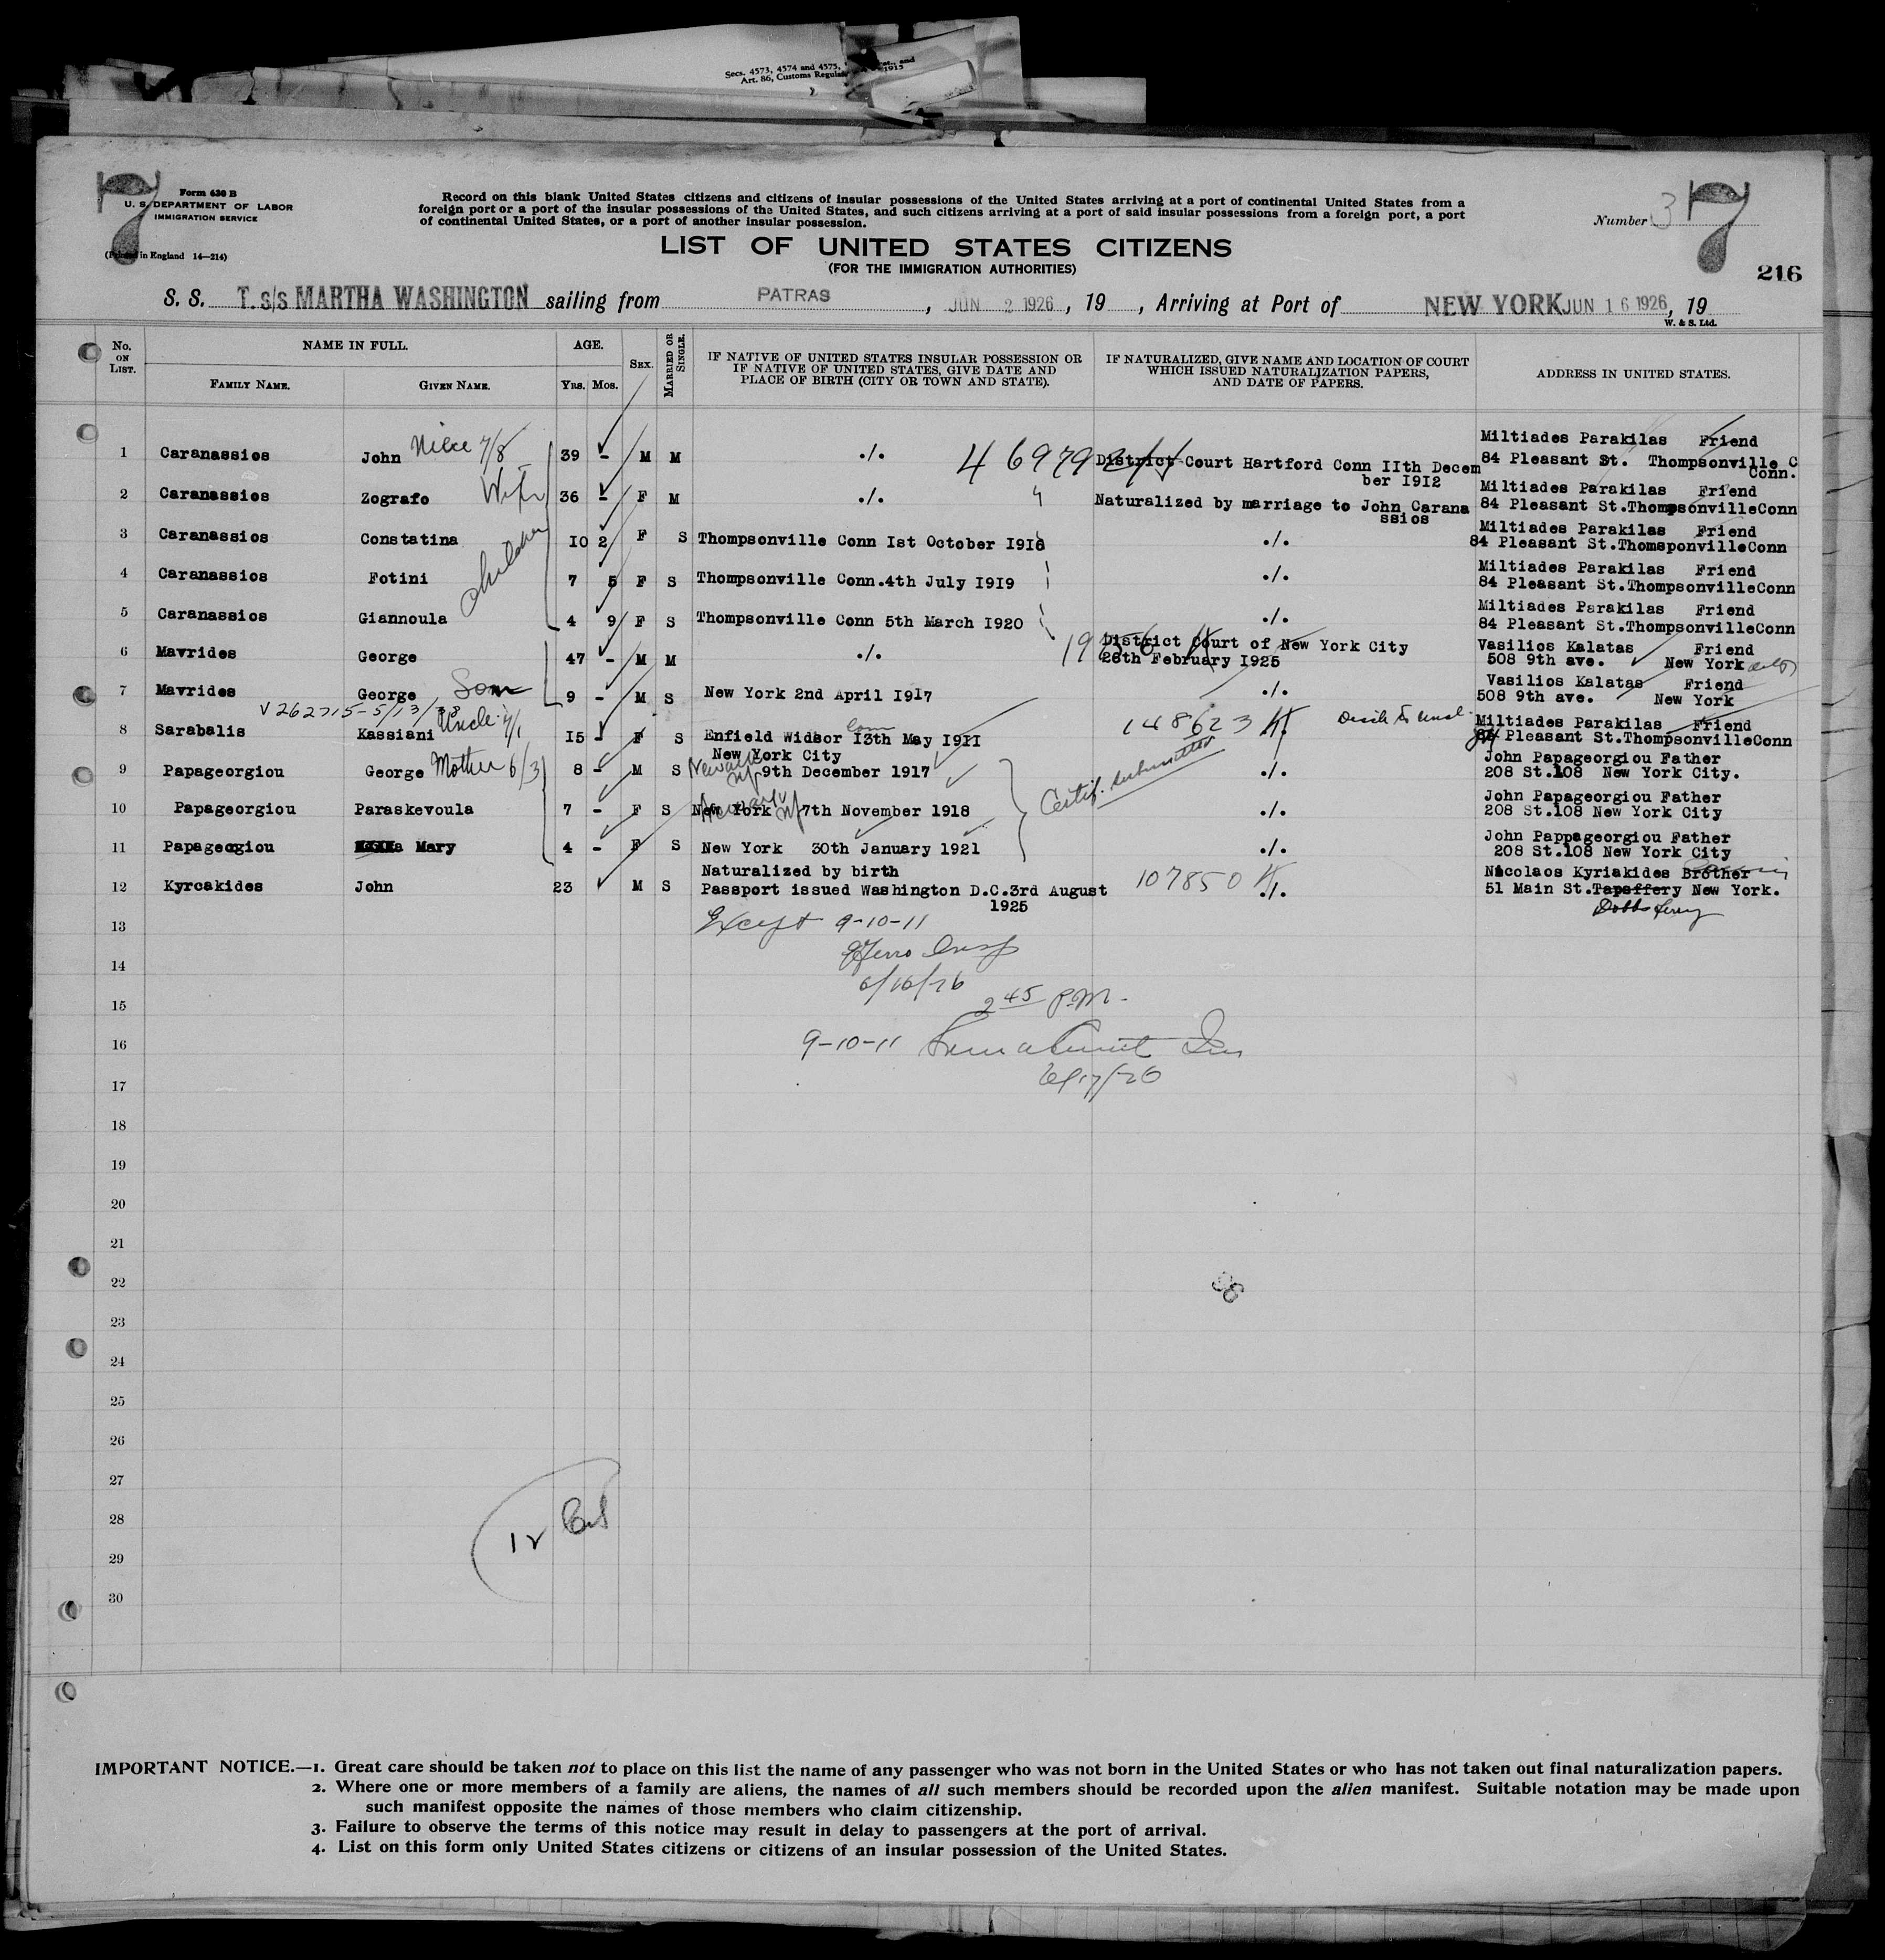 Secs. 4573, 4574 and 4575,
Art. 86, Customs
1915
7
Form 630 B
U. S. DEPARTMENT OF LABOR
IMMIGRATION SERVICE
in England 14—214)
Record on this blank United States citizens and citizens of insular possessions of the United States arriving at a port of continental United States from a
foreign port or a port of the insular possessions of the United States, and such citizens arriving at a port of said insular possessions from a foreign port, a port
of continental United States, or a port of another insular possession.
Number 3
7
LIST OF UNITED STATES CITIZENS
(FOR THE IMMIGRATION AUTHORITIES)
216
S. S. T. s/s MARTHA WASHINGTON sailing from PATRAS, JUN 2 1926, 19 , Arriving at Port of NEW YORK JUN 16 1926, 19
W. & S. Ltd.
No. ON LIST.
NAME IN FULL.
FAMILY NAME.
GIVEN NAME.
AGE.
YRS. MOS.
SEX.
MARRIED OR SINGLE.
IF NATIVE OF UNITED STATES INSULAR POSSESSION OR
IF NATIVE OF UNITED STATES, GIVE DATE AND
PLACE OF BIRTH (CITY OR TOWN AND STATE).
IF NATURALIZED, GIVE NAME AND LOCATION OF COURT
WHICH ISSUED NATURALIZATION PAPERS,
AND DATE OF PAPERS.
ADDRESS IN UNITED STATES.
Miltiades Parakilas Friend
1 Caranassios John Niece 7/8 39 - M M ./. 469792 District Court Hartford Conn IIth Decem 84 Pleasant St. Thompsonville C
ber I9I2 Conn.
Miltiades Parakilas Friend
2 Caranassios Zografo Wife 36 - F M ./. Naturalized by marriage to John Carana 84 Pleasant St.ThompsonvilleConn
ssios
children
Miltiades Parakilas Friend
3 Caranassios Constatina I0 2 F S Thompsonville Conn Ist October I9I6 ./. 84 Pleasant St.ThomsponvilleConn
Miltiades Parakilas Friend
4 Caranassios Fotini 7 5 F S Thompsonville Conn.4th July I9I9 ./. 84 Pleasant St.ThompsonvilleConn
Miltiades Parakilas Friend
5 Caranassios Giannoula 4 9 F S Thompsonville Conn 5th March I920 ./. 84 Pleasant St.ThompsonvilleConn
District Court of New York City Vasilios Kalatas Friend
6 Mavrides George 47 - M M ./. 28th February I925 508 9th ave. New York
Vasilios Kalatas Friend
7 Mavrides George Son 9 - M S New York 2nd April I9I7 ./. 508 9th ave. New York
V 262715-5/13/38
148623
Miltiades Parakilas Friend
8 Sarabalis Kassiani Uncle 7/1 I5 - F S Enfield Widsor Conn I3th May I9II ./. 84 Pleasant St.ThompsonvilleConn
New York City John Papageorgiou Father
9 Papageorgiou George Mother 6/3 8 - M S Newark NJ 9th December 1917 ./. 208 St.108 New York City.
Certif. submitted
John Papageorgiou Father
10 Papageorgiou Paraskevoula 7 - F S New York Newark NJ 7th November 1918 ./. 208 St.108 New York City
John Pappageorgiou Father
11 Papageorgiou Mary 4 - F S New York 30th January 1921 ./. 208 St.108 New York City
Naturalized by birth Nicolaos Kyriakides Brother
12 Kyrcakides John 23 M S Passport issued Washington D.C.3rd August 107850 ./. 51 Main St.Tapsffery New York.
1925 Dobbs ferry
13 Except 9-10-11
14
6/16/26
15 2 45 P.M.
16 9-10-11
6/17/26
17
18
19
20
21
22
23
24
25
26
27
28
12
29
30
IMPORTANT NOTICE.—1. Great care should be taken not to place on this list the name of any passenger who was not born in the United States or who has not taken out final naturalization papers.
2. Where one or more members of a family are aliens, the names of all such members should be recorded upon the alien manifest. Suitable notation may be made upon
such manifest opposite the names of those members who claim citizenship.
3. Failure to observe the terms of this notice may result in delay to passengers at the port of arrival.
4. List on this form only United States citizens or citizens of an insular possession of the United States.